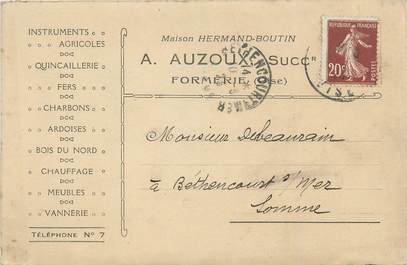 INSTRUMENTS
AGRICOLES
QUINCAILLERIE
FERS
CHARBONS
ARDOISES
BOIS DU NORD
CHAUFFAGE
MEUBLES
VANNERIE
TÉLÉPHONE Nº 7
Maison HERMAND-BOUTIN
A. AUZOUX, Succr
FORMERIE (Oise)
REPUBLIQUE FRANÇAISE
20c
POSTES
BETHENCOURT S MER
OISE
Monsieur Delbeaurain
à Béthencourt s/ Mer
Somme